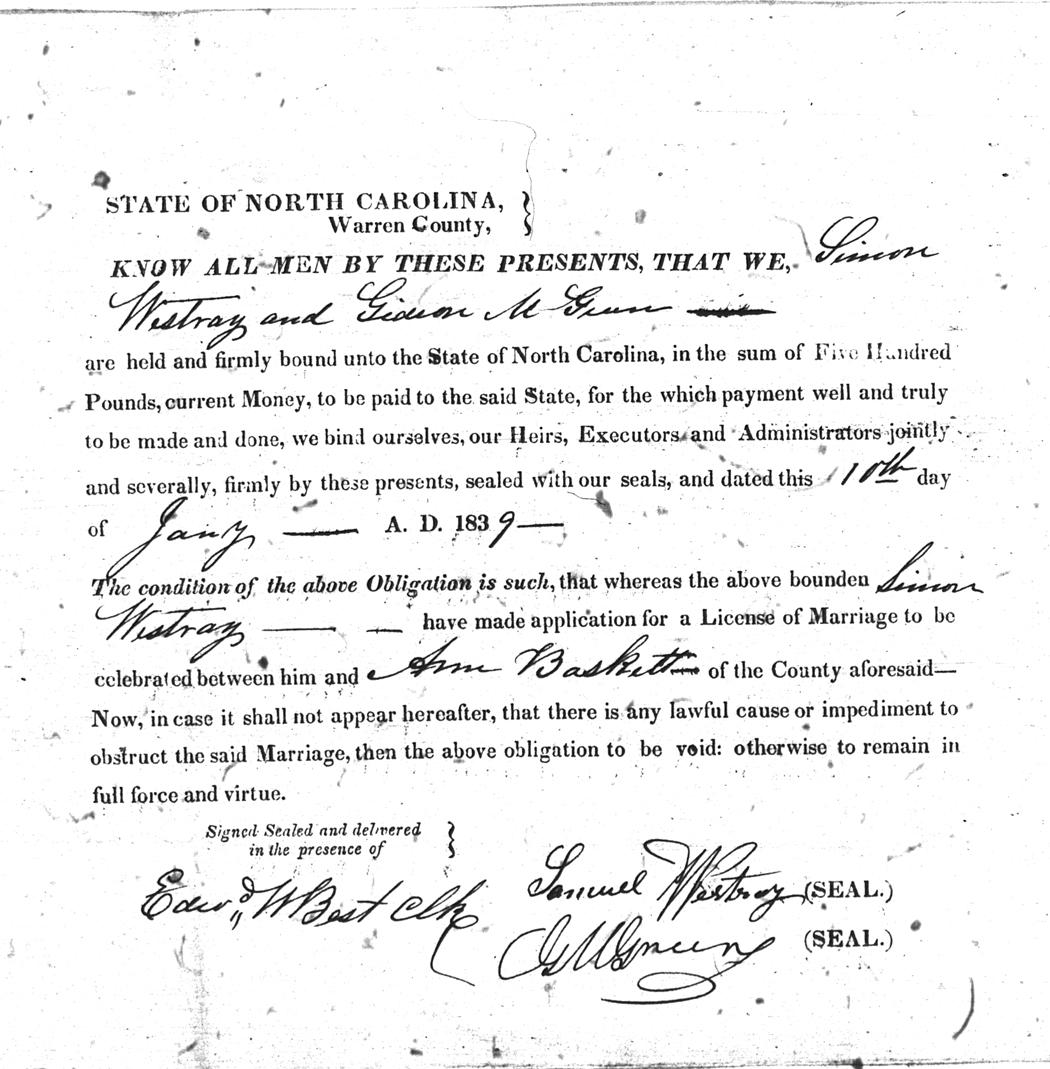 STATE OF NORTH CAROLINA,
Warren County,
KNOW ALL MEN BY THESE PRESENTS, THAT WE, Simon
Westray and Gideon M Green
are held and firmly bound unto the State of North Carolina, in the sum of Five Hundred
Pounds, current Money, to be paid to the said State, for the which payment well and truly
to be made and done, we bind ourselves, our Heirs, Executors and Administrators jointly
and severally, firmly by these presents, sealed with our seals, and dated this 10th day
of Jany — A. D. 1839—
The condition of the above Obligation is such, that whereas the above bounden Simon
Westray — — have made application for a License of Marriage to be
celebrated between him and Ann Baskett of the County aforesaid—
Now, in case it shall not appear hereafter, that there is any lawful cause or impediment to
obstruct the said Marriage, then the above obligation to be void: otherwise to remain in
full force and virtue.
Signed Sealed and delivered
in the presence of
Edwd W Best Clk
Samuel Westray (SEAL.)
G M Green (SEAL.)